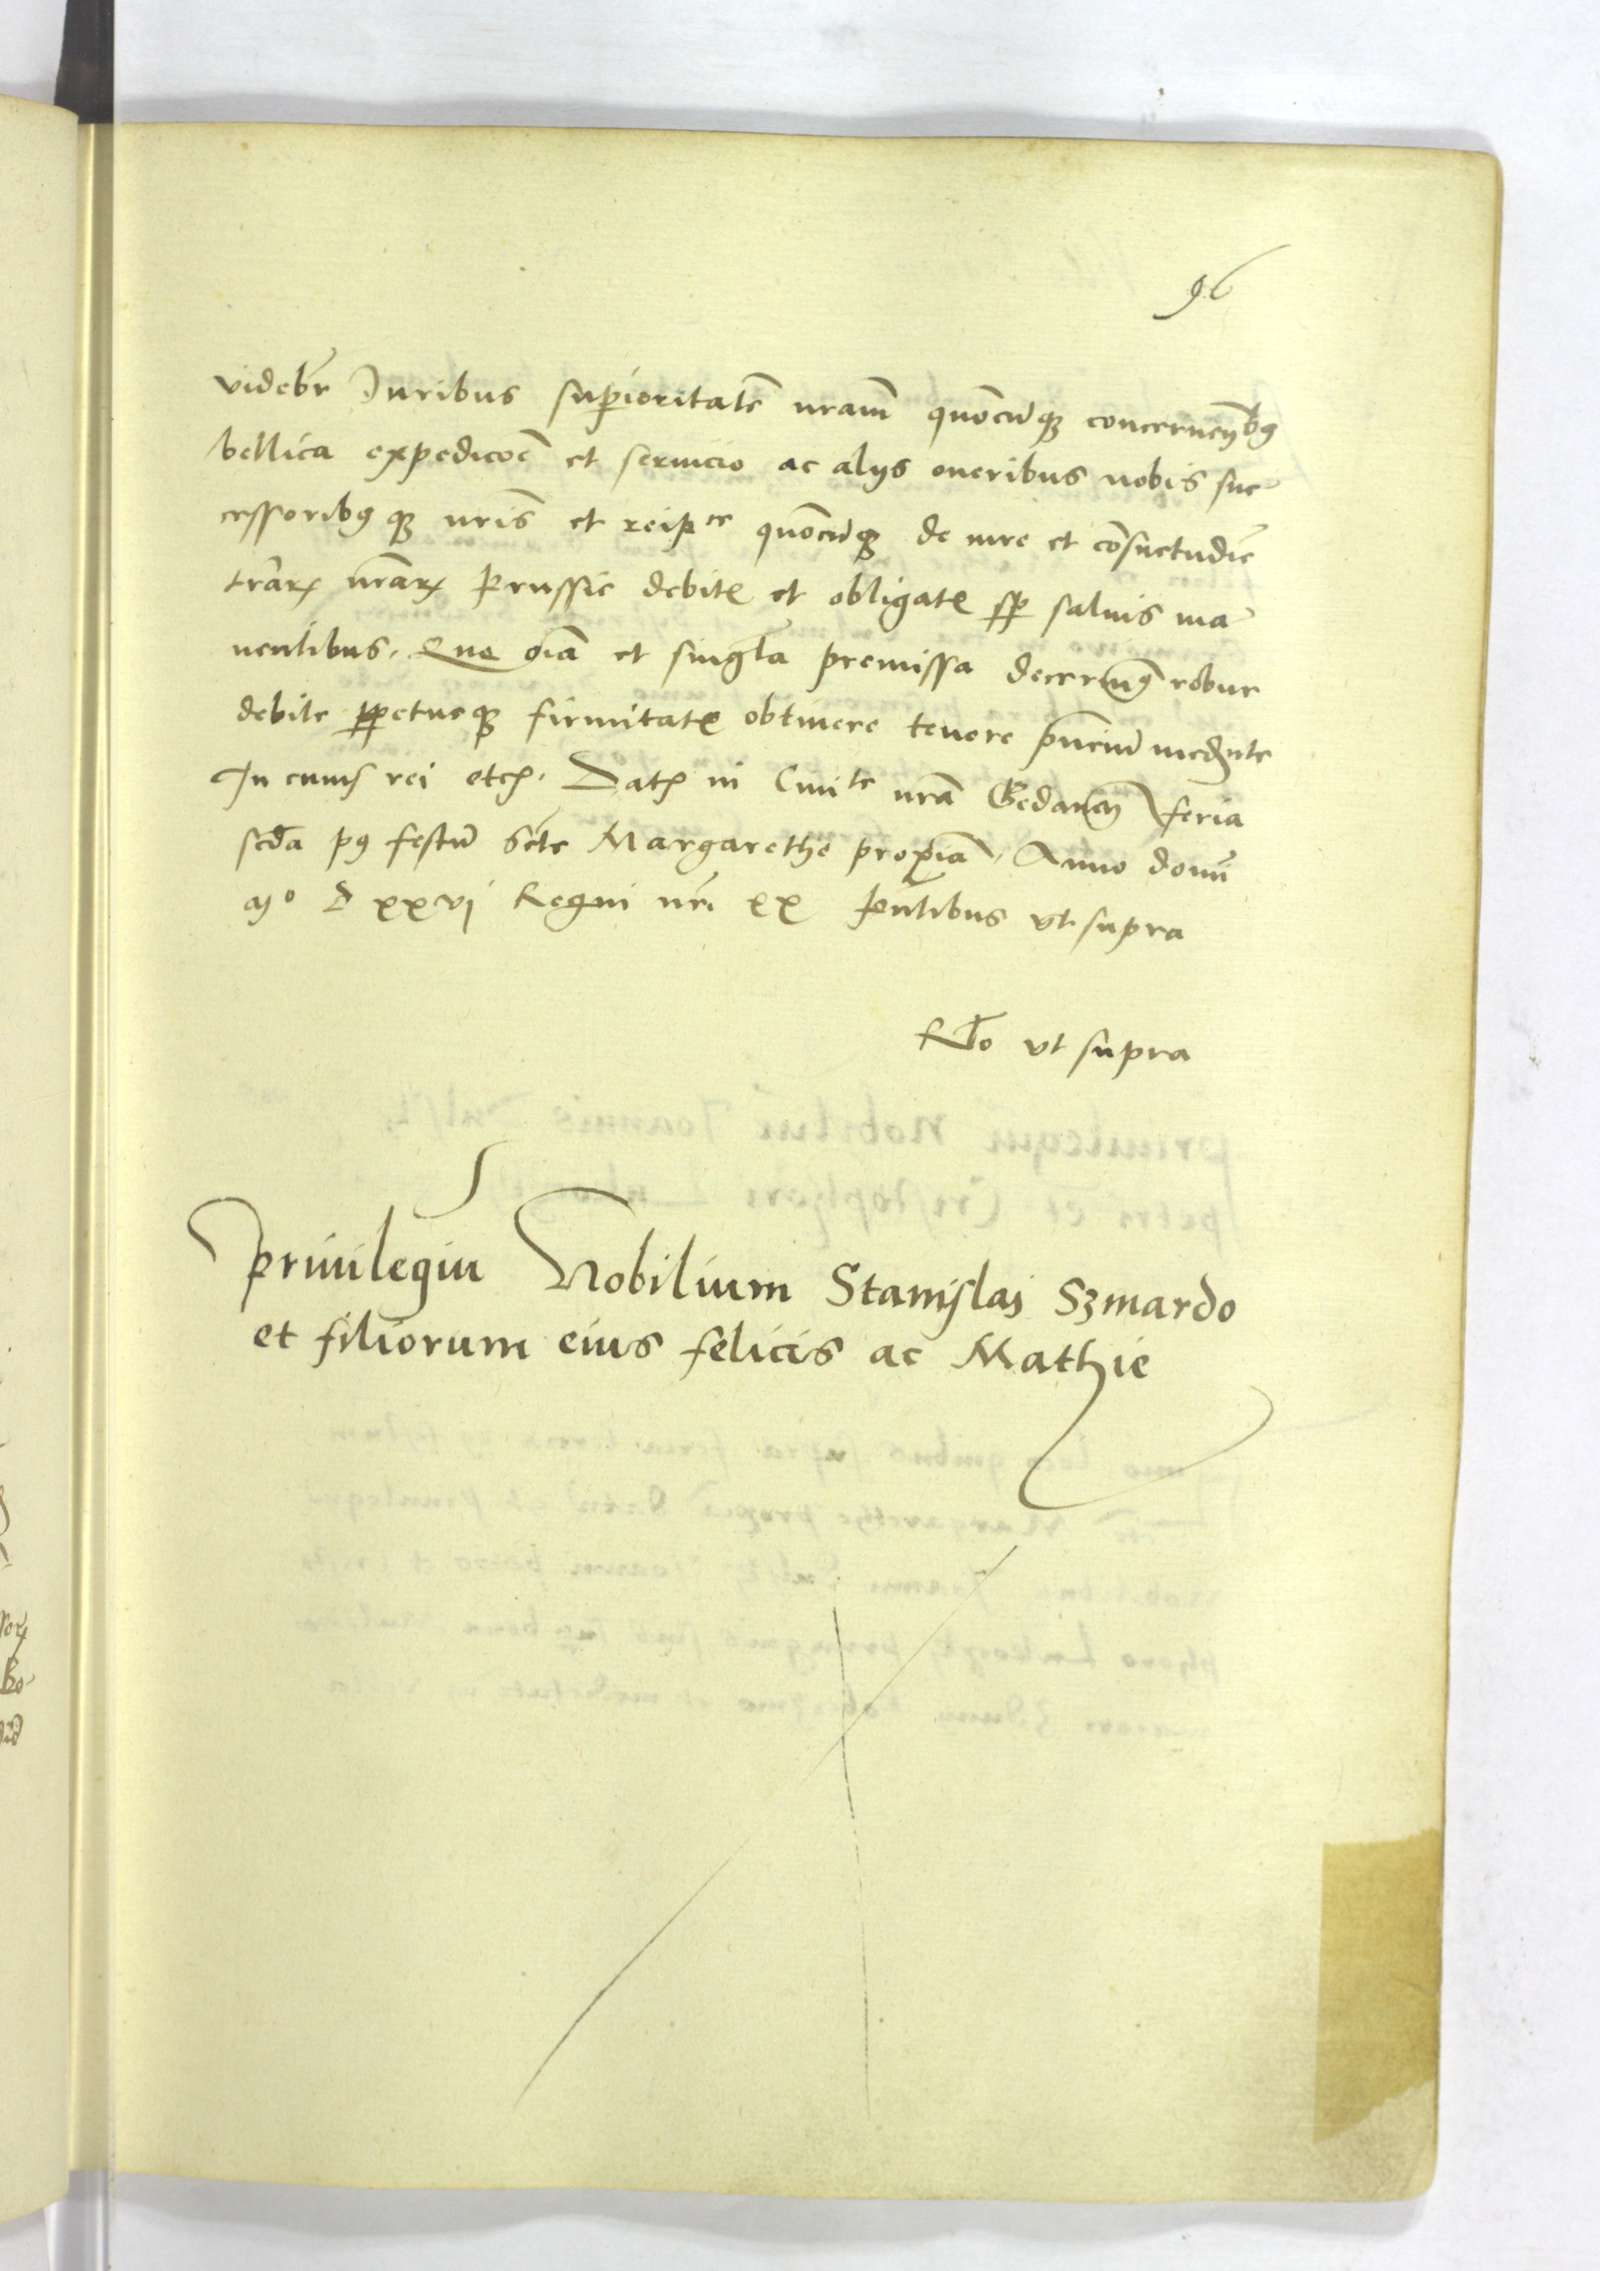 96
videbr Juribus supioritate nram quocuq concernentibg
bellica expedicoe et seruicio ac alijs oneribus nobis suc
cessoribg q nris et reipce quocuq de iure et cosuetudie
trar nrar Prussie debite et obligate sp saluis ma
nentibus. Que oia et singla premissa decernimg robur
debite ppetueq firmitate obtinere tenore pncium mediante
In cuius rei etc. Dat in Ciuite nra Gedanen feria
scda pg festu Scte Margarethe proxia, Anno domi
Mo D xxvj Regni nri xx pntibus vt supra
Rlo vt supra
Priuilegiu Nobilium Stanislai Szmardo
et filiorum eius felicis ac Mathie